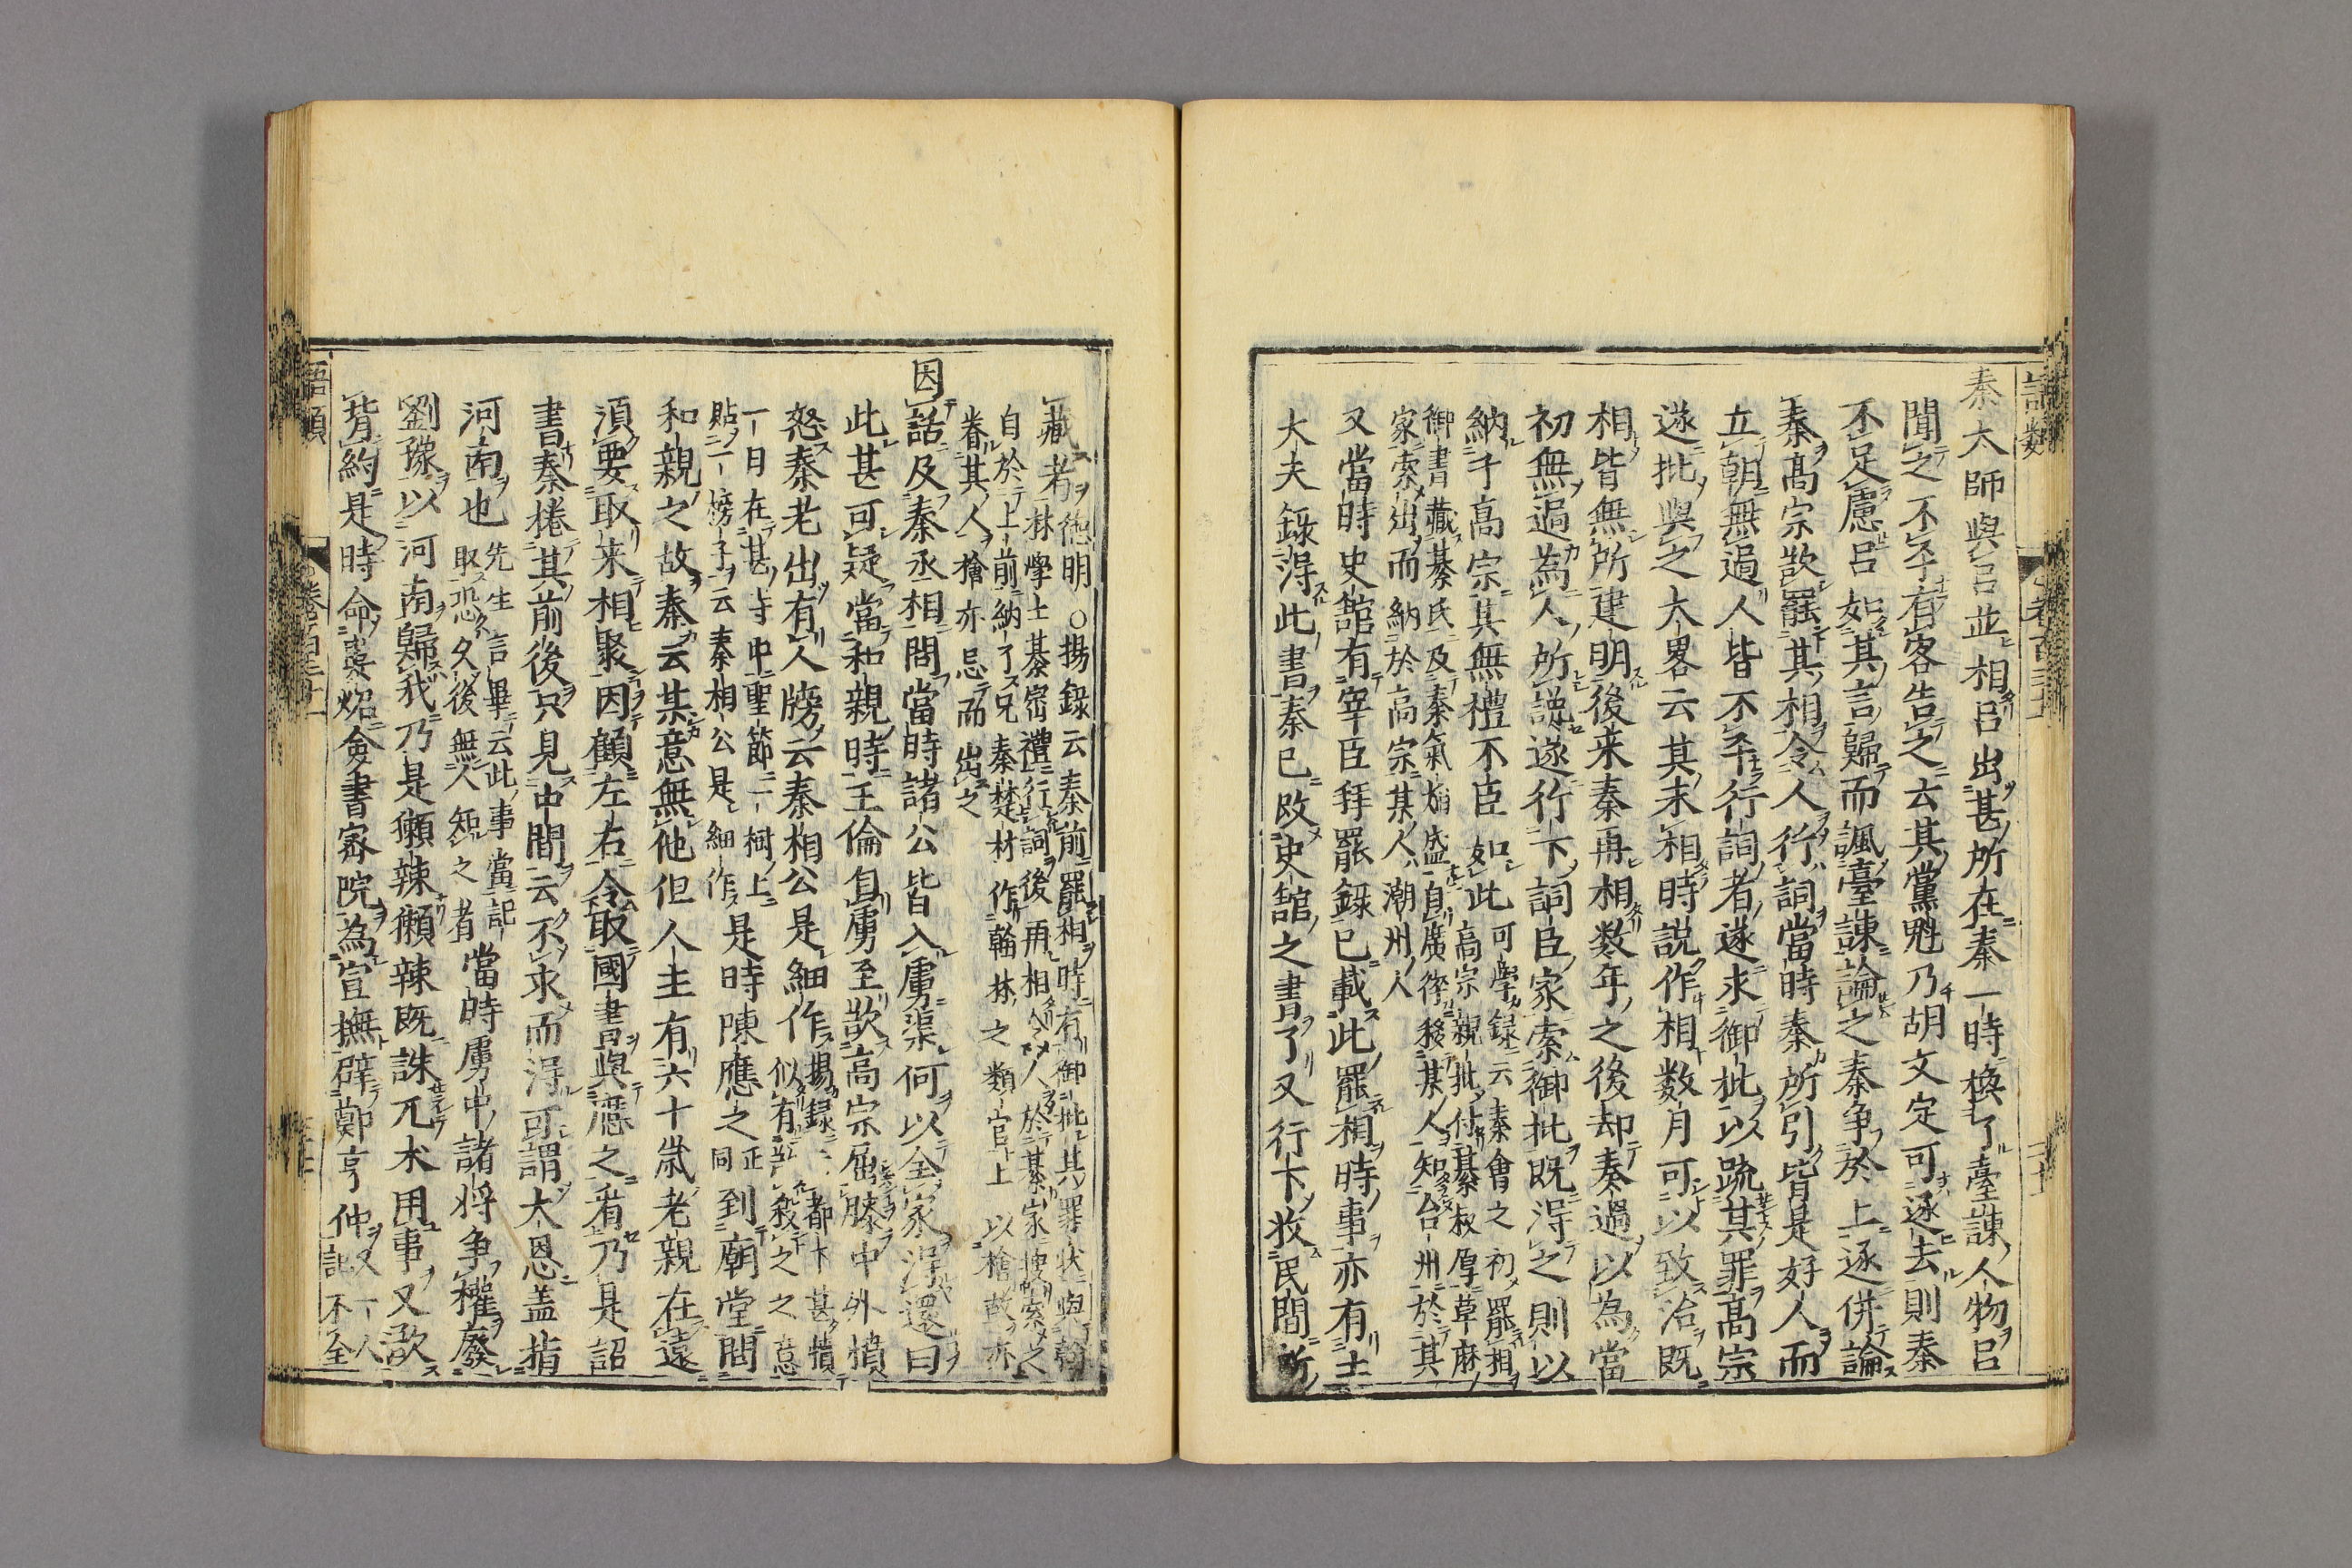 語類
卷百三十一
秦太師與呂並相呂出甚所在秦一時換了臺諫人物呂
聞之不平有客告之云其黨魁乃胡文定可逐去則秦
不足慮呂如其言歸而諷臺諫論之秦爭於上逐併論
秦高宗欲罷其相令人行詞當時秦所引皆是好人而
立朝無過人皆不平行詞者遂求御批以䟽其罪高宗
遂批與之大畧云其未相時説作相数月可以致治既
相皆無所建明後来秦再相数年之後却奏過以為當
初無過為人所説遂行下詞臣家索御批既得之則以
納于高宗其無禮不臣如此可學録云秦會之初罷相
高宗親批付綦叔厚草麻
御書藏綦氏及秦氣焰盛自廣徑移某人知台州於其
家索出而納於高宗某人潮州人
又當時史館有宰臣拜罷錄已載此罷相時事亦有士
大夫錄得此書秦已改史館之書了又行下收民間所
藏者德明○揚錄云秦前罷相時有御批其罪状與翰
林學士綦崈禮行詞後再相令人於綦家搜索之
自於上前納了兄秦楚材作翰林之類官上以檜故亦
眷其人檜亦忌而出之
因話及秦丞相問當時諸公皆入虜渠何以全家得還曰
此甚可疑當和親時王倫自虜至欲高宗屈膝中外憤
怒秦老出有人牓云秦相公是細作揚録云都下甚憤
似有欲殺之之意
一日在甚寺中聖節一樹上
貼一榜子云秦相公是細作是時陳應之正同到廟堂問
和親之故秦云某意無他但人主有六十歲老親在遠
須要取来相聚因顧左右令取國書與應之看乃是詔
書秦捲其前後只見中間云不求而得可謂大恩盖指
河南也先生言畢云此事當記
取恐久後無人知之者當時虜中諸將争權廢
劉豫以河南歸我乃是獺辣獺辣既誅兀术用事又欲
背約是時命樓炤僉書密院為宣撫辟鄭亨仲又一人
記不全
語類
卷百三十一